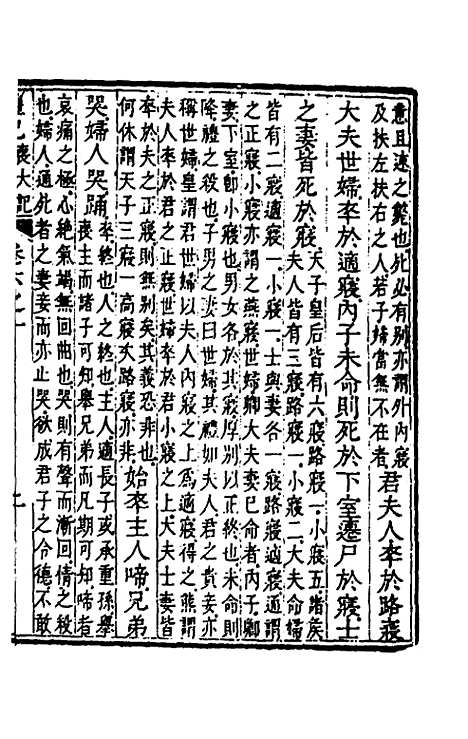 意且遠之褻也死必有別亦謂外內寢
及扶左扶右之人若子婦當無不在者
君夫人卒於路寢
大夫世婦卒於適寢內子未命則死於下室遷尸於寢士
之妻皆死於寢
天子皇后皆有六寢路寢一小寢五諸矦
夫人皆有三寢路寢一小寢二大夫命婦
皆有二寢適寢一小寢一士與妻各一寢路寢適寢通謂
之正寢小寢亦謂之燕寢世婦卿大夫妻已命者內子卿
妻下室卽小寢也男女各於其寢厚別以正終也未命則
降禮之殺也子男之妻曰世婦其禮如夫人君之貴妾亦
稱世婦皇謂君世婦以夫人內寢之上爲適寢得之熊謂
夫人卒於君之正寢世婦卒於君小寢之上大夫士妻皆
卒於夫之正寢則無別矣其義恐非也
何休謂天子三寢一高寢矢路寢亦非
始卒主人啼兄弟
哭婦人哭踊
卒終也人之終也主人適長子或承重孫舉
喪主而諸子可知舉兄弟而凡期可知啼者
哀痛之極心絶氣竭無回曲也哭則有聲而漸回情之殺
也婦人通死者之妻妾而亦止哭欲成君子之令德不敢
禮記喪大記 卷六之一